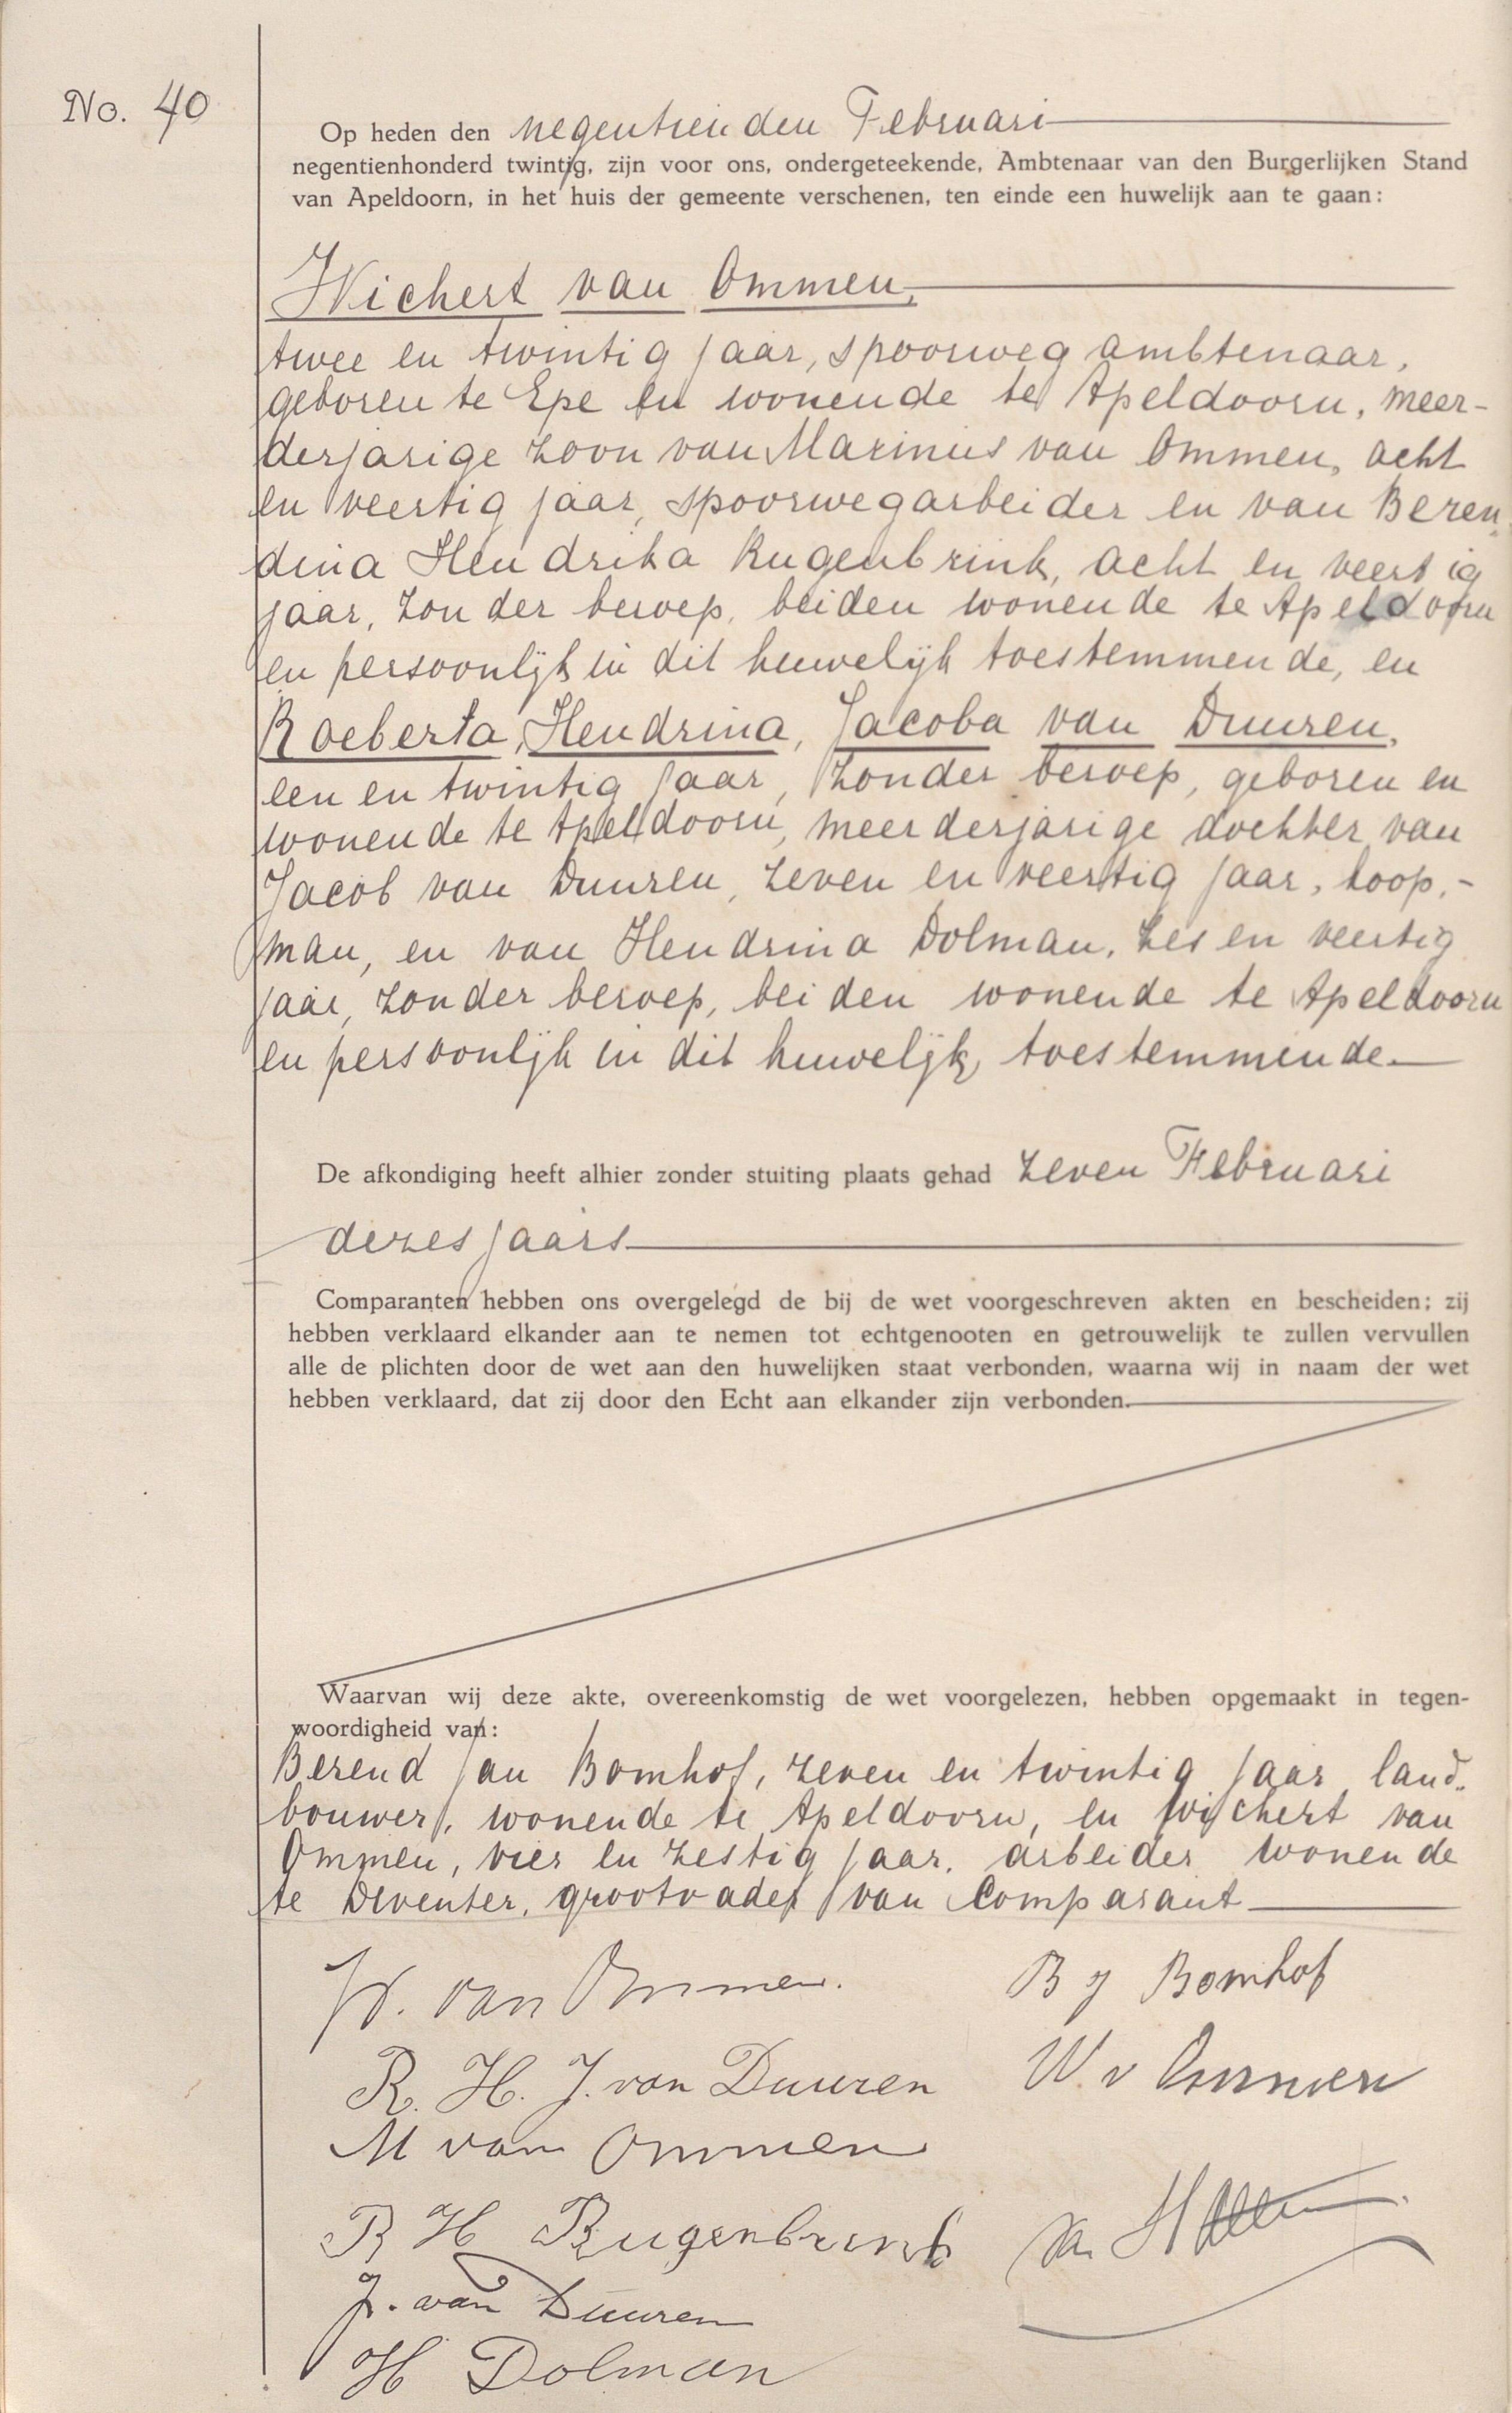 No. 40
Op heden den negentienden Februari
negentienhonderd twintig, zijn voor ons, ondergeteekende, Ambtenaar van den Burgerlijken Stand
van Apeldoorn, in het huis der gemeente verschenen, ten einde een huwelijk aan te gaan:
Wichert van Ommen,
twee en twintig jaar, spoorweg ambtenaar,
geboren te Epe en wonende te Apeldoorn, meer-
derjarige zoon van Marinus van Ommen, acht
en veertig jaar, spoorwegarbeider en van Beren
dina Hendrika Rugenbrink, acht en veertig
jaar, zonder beroep, beiden wonende te Apeldoorn
en persoonlijk in dit huwelijk toestemmende, en
Roeberta, Hendrina, Jacoba van Duuren,
een en twintig jaar, zonder beroep, geboren en
wonende te Apeldoorn, meerderjarige dochter van
Jacob van Duuren, zeven en veertig jaar, koop,-
man, en van Hendrina Dolman, zes en veertig
jaar, zonder beroep, beiden wonende te Apeldoorn
en persoonlijk in dit huwelijk toestemmende.
De afkondiging heeft alhier zonder stuiting plaats gehad zeven Februari
dezes jaars
Comparanten hebben ons overgelegd de bij de wet voorgeschreven akten en bescheiden; zij
hebben verklaard elkander aan te nemen tot echtgenooten en getrouwelijk te zullen vervullen
alle de plichten door de wet aan den huwelijken staat verbonden, waarna wij in naam der wet
hebben verklaard, dat zij door den Echt aan elkander zijn verbonden.
Waarvan wij deze akte, overeenkomstig de wet voorgelezen, hebben opgemaakt in tegen-
woordigheid van:
Berend Jan Bomhof, zeven en twintig jaar land-
bouwer, wonende te Apeldoorn, en Wichert van
Ommen, vier en zestig jaar, arbeider wonende
te Deventer, grootvader van Comparant
W. van Ommen.
B J Bomhof
R. H. J. van Duuren
W. v Ommen
M van Ommen
B H Rugenbrink
J. van Duuren
H Dolman